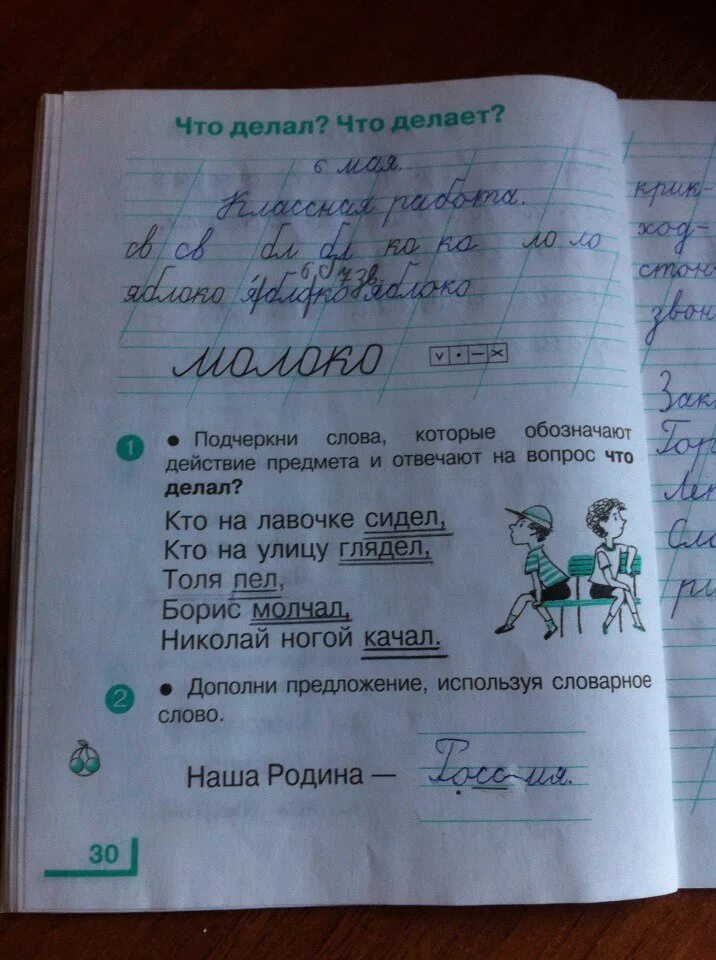 Что делал? Что делает?
6 мая.
Классная работа.
св св бл бл ко ко ло ло
яблоко яблоко яблоко
6 б 7 зв
молоко
1 • Подчеркни слова, которые обозначают
действие предмета и отвечают на вопрос что
делал?
Кто на лавочке сидел,
Кто на улицу глядел,
Толя пел,
Борис молчал,
Николай ногой качал.
2 • Дополни предложение, используя словарное
слово.
Наша Родина — Россия.
30
крик-
ход-
стон-
звон
Зак
Гор
Сло